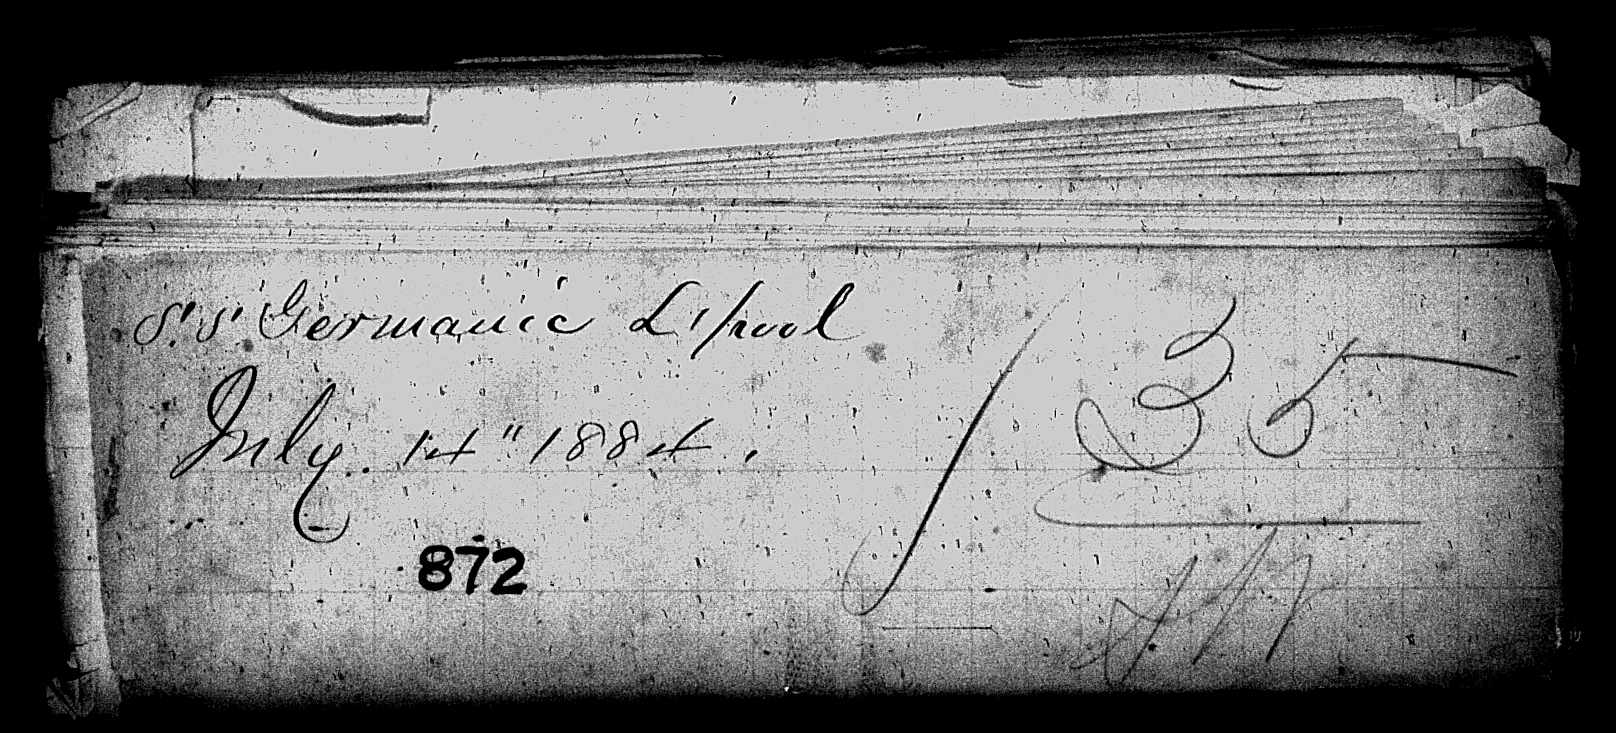 S.S. Germanic L'pool
July. 14" 1884.
872
135